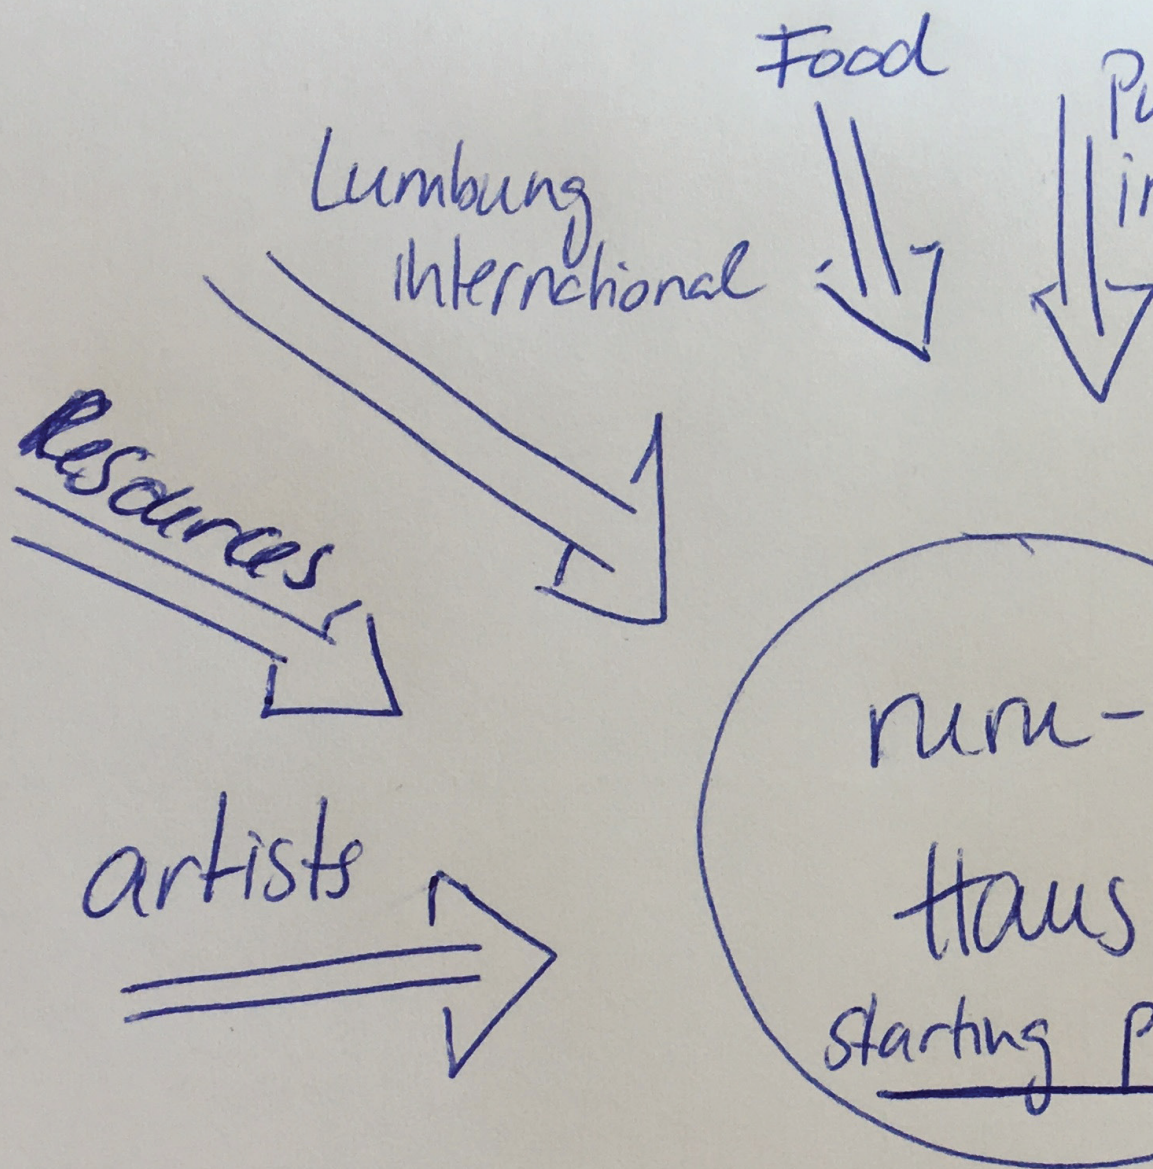 Food
Lumbung
international
Resources
artists
ruru-
Haus
starting